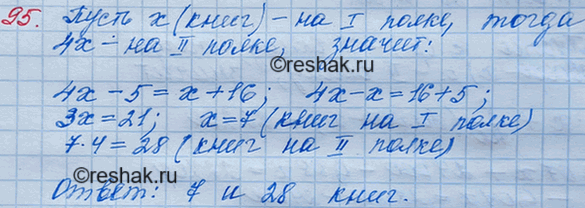 95. Пусть x (книг) - на I полке, тогда
4x - на II полке, значит:
©reshak.ru
4x - 5 = x + 16; 4x - x = 16 + 5;
3x = 21; x = 7 (книг на I полке)
7 · 4 = 28 (книг на II полке)
Ответ: 7 и 28 книг.